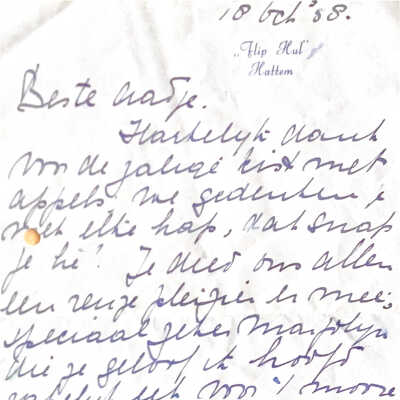 18 Oct '58.
„Flip Hul"
Hattem
Beste
Hartelyk dank
voor de zalige kist met
appels we gedenken je
met elke hap, dat snap
je hè! Je deed ons allen
een reuze pleizier er mee,
speciaal zeker Marjolyn
die je geloof ik hoofd
voor 't mooie